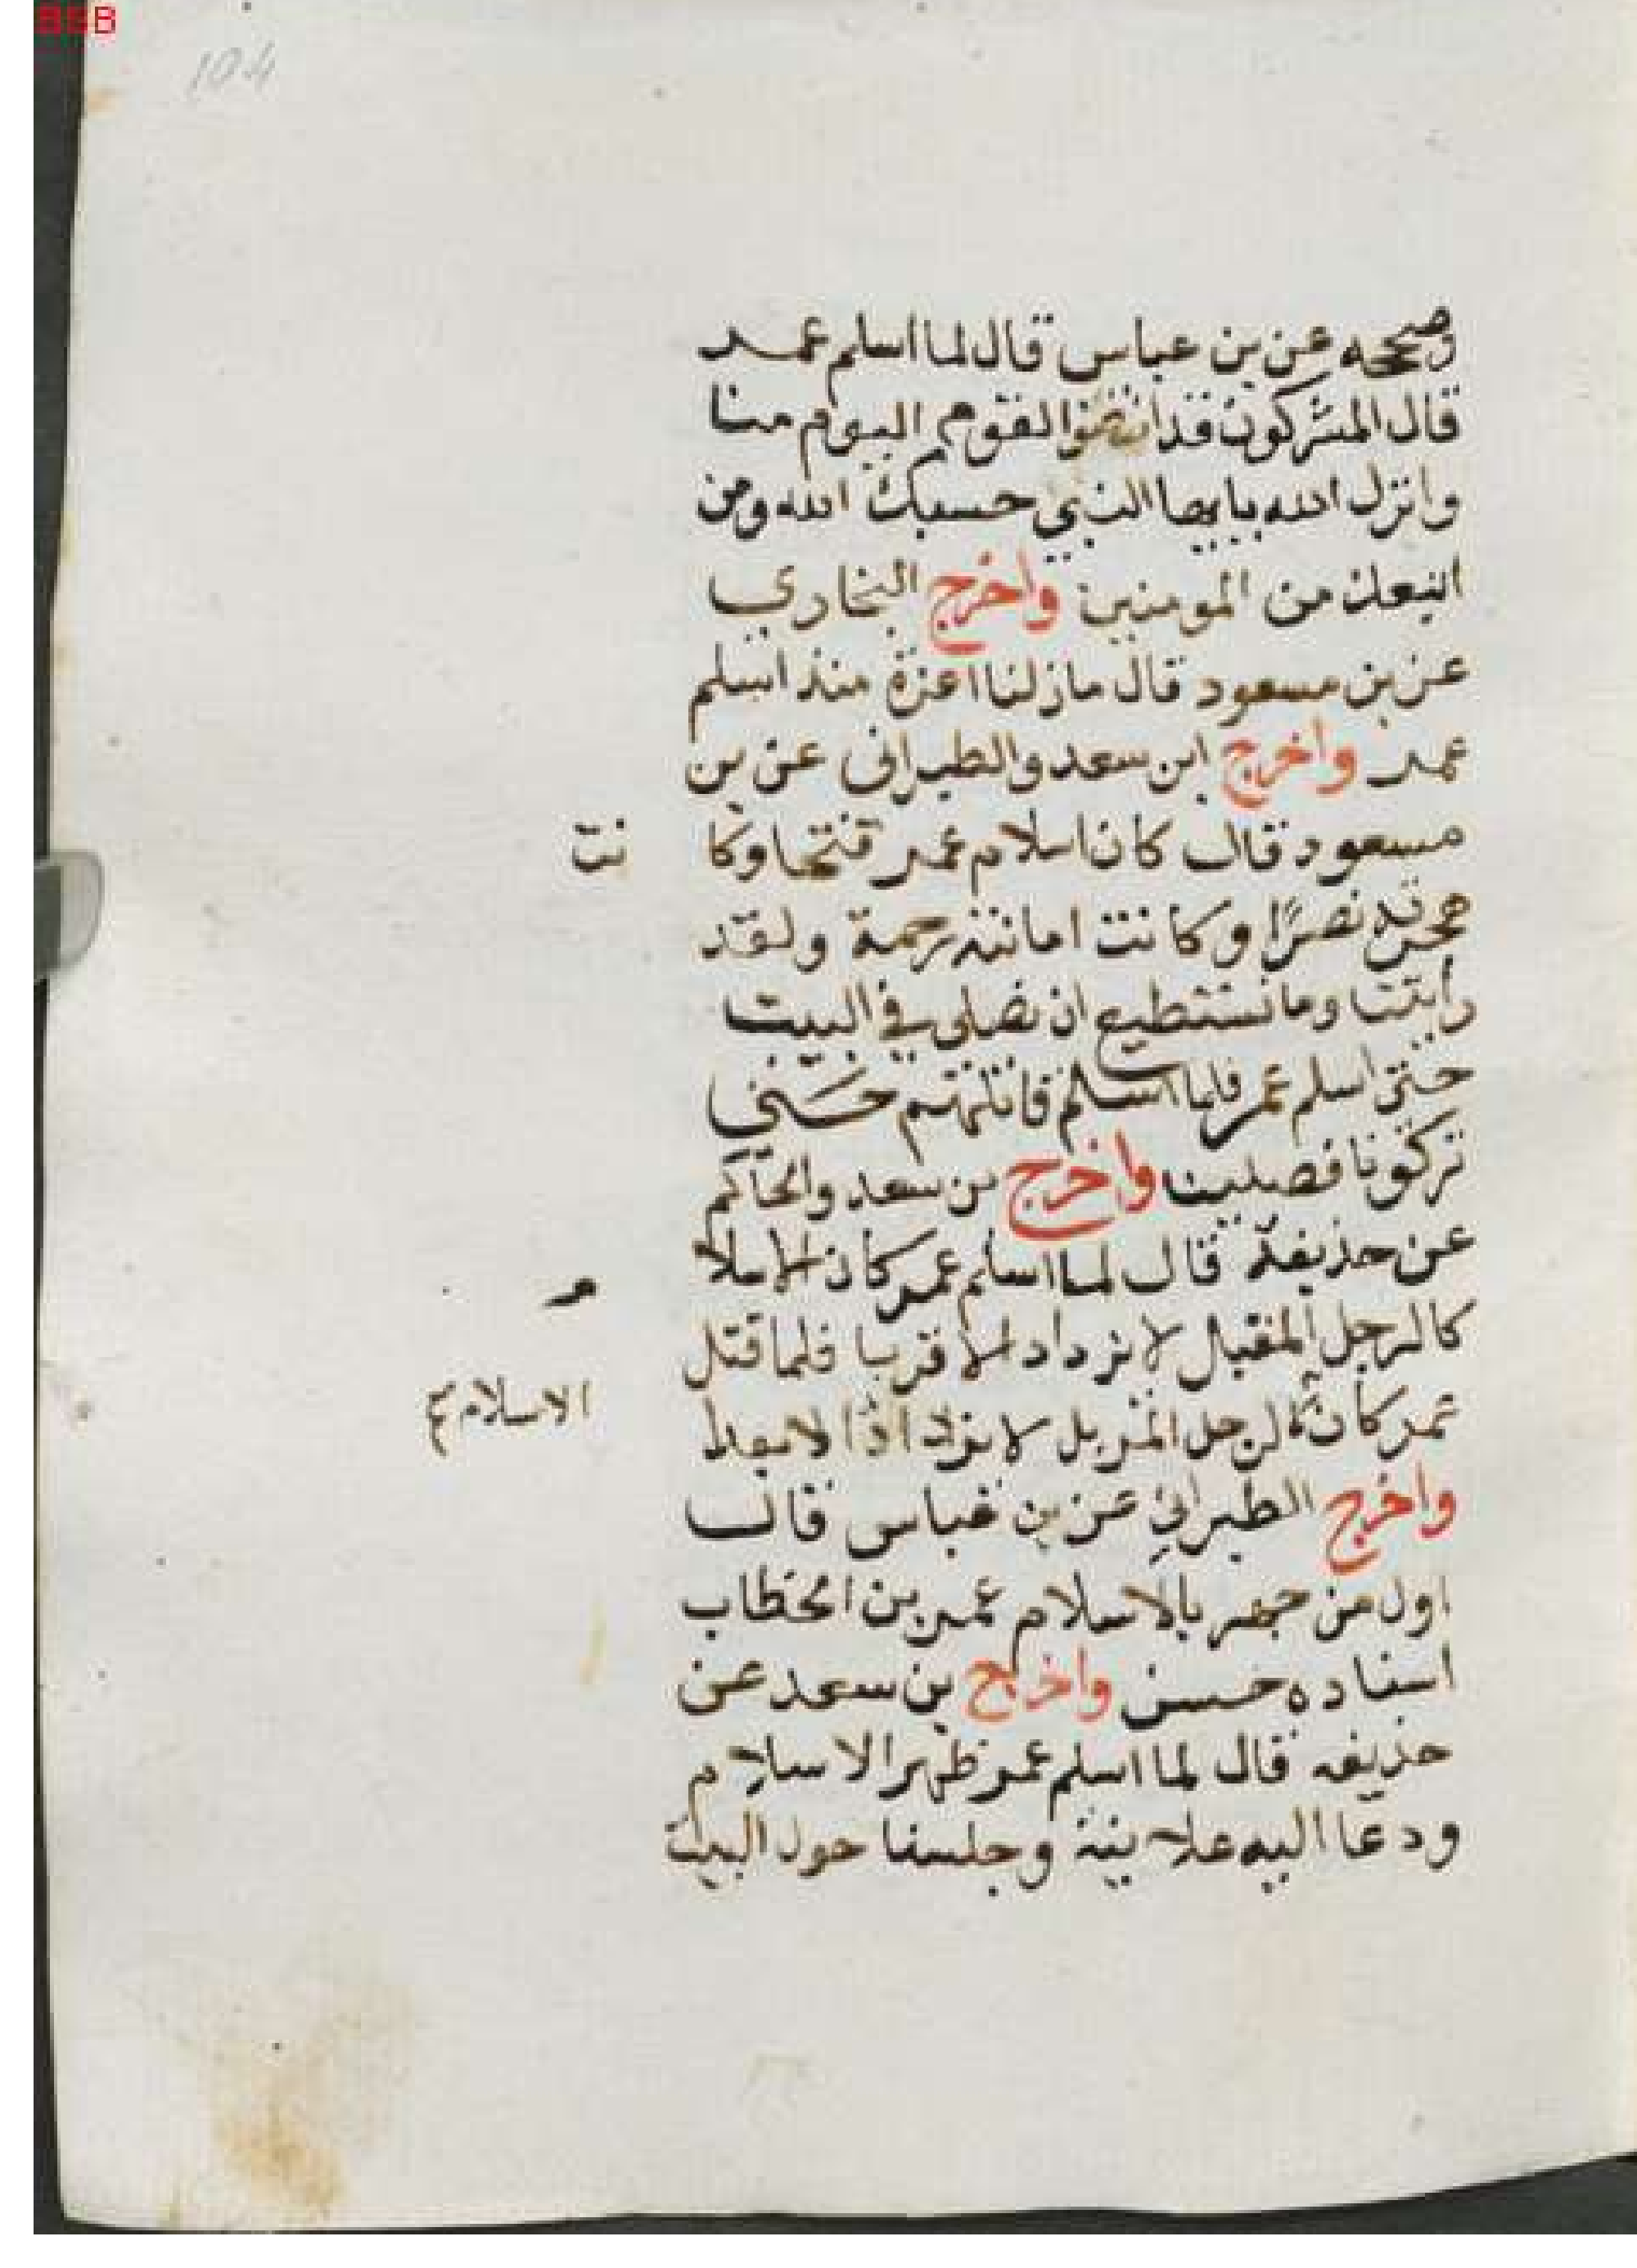 BSB
104
وصححه عن بن عباس قال لما اسلم عمر
قال المشركون قد انتصفوا القوم اليوم منا
وانزل الله يا ايها النبي حسبك الله ومن
اتبعك من المومنين واخرج البخاري
عن بن مسعود قال ما زلنا اعزة منذ اسلم
عمر واخرج ابن سعد والطبراني عن بن
مسعود قال كان اسلام عمر فتحا وكا نت
هجرته نصرًا وكانت امامته رحمة ولقد
رأيتنا وما نستطيع ان نصلي في البيت
حتى اسلم عمر فلما اسلم قاتلهم حتي
تركونا فصلينا واخرج بن سعد والحاكم
عن حذيفة قال لما اسلم عمر كان الاسلا م
كالرجل المقبل لا يزداد الا قربا فلما قتل
عمر كان كالرجل المدبر لا يزداد الا بعدا
الاسلام صح
واخرج الطبراني عن بن عباس قال
اول من جهر بالاسلام عمر بن الخطاب
اسناده حسن واخرج بن سعد عن
حذيفه قال لما اسلم عمر ظهر الاسلام
ودعا اليه علانية وجلسنا حول البيت